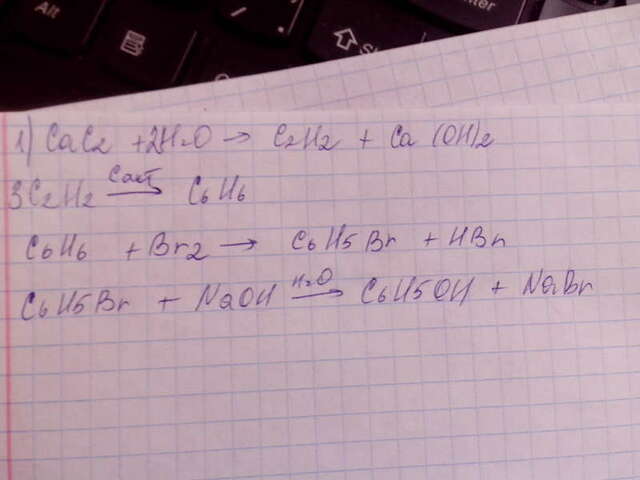 Alt
Enter
1) CaC2 + 2H2O → C2H2 + Ca (OH)2
3C2H2 Cакт → C6H6
C6H6 + Br2 → C6H5Br + HBr
C6H5Br + NaOH H2O → C6H5OH + NaBr